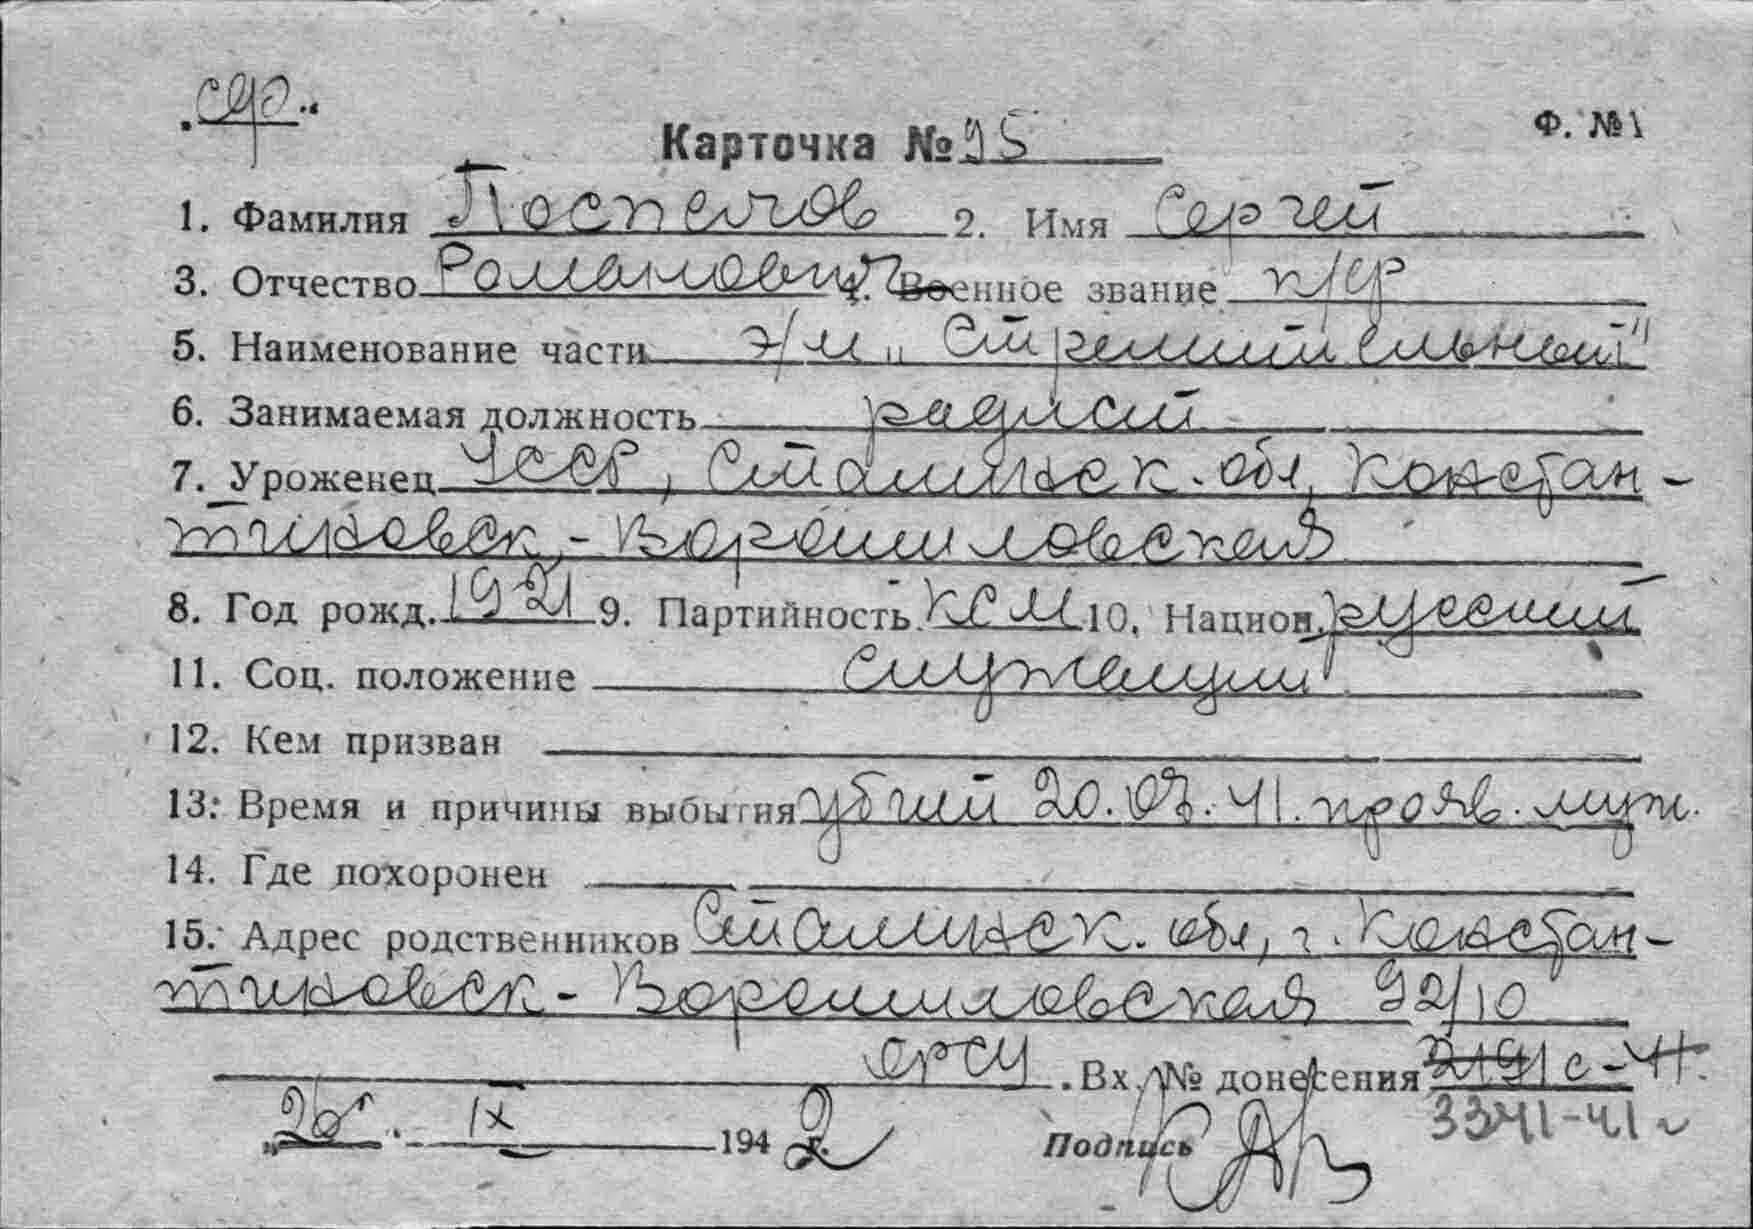 Ф. №1
Карточка № 95
1. Фамилия Поспелов 2. Имя Сергей
3. Отчество Романович 4. Военное звание к/ср
5. Наименование части э/м „Стремительный"
6. Занимаемая должность радист
7. Уроженец УССР, Сталинск. обл, Констан-
тиновск,- Ворошиловская
8. Год рожд. 1921 9. Партийность КСМ 10. Национ. русский
11. Соц. положение служащий
12. Кем призван
13. Время и причины выбытия убит 20.07.41. прояв. муж.
14. Где похоронен
15. Адрес родственников Сталинск. обл, г. Констан-
тиновск - Ворошиловская 92/10
Вх. № донесения 2191с-41.
3341-41
„26". IX 1942 г. Подпись